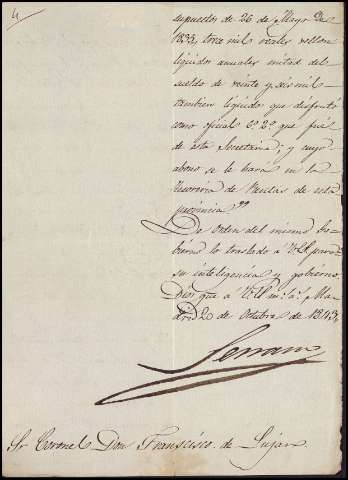 4
supuestos de 26 de Mayo de
1835, trece mil reales vellon
liquidos anuales mitad del
sueldo de veinte y seis mil
tambien liquidos que disfrutó
como oficial 6º 2º que fué
de esta Secretaria; y cuyo
abono se le hará en la
Tesoreria de Rentas de esta
provincia."
De orden del mismo Go-
bierno lo traslado á V.S. para
su inteligencia y gobierno.
Dios gue á V.S. m.s a.s Ma-
drid 20 de Octubre de 1843.
Serrano
Sr Coronel Don Francisco de Lujan